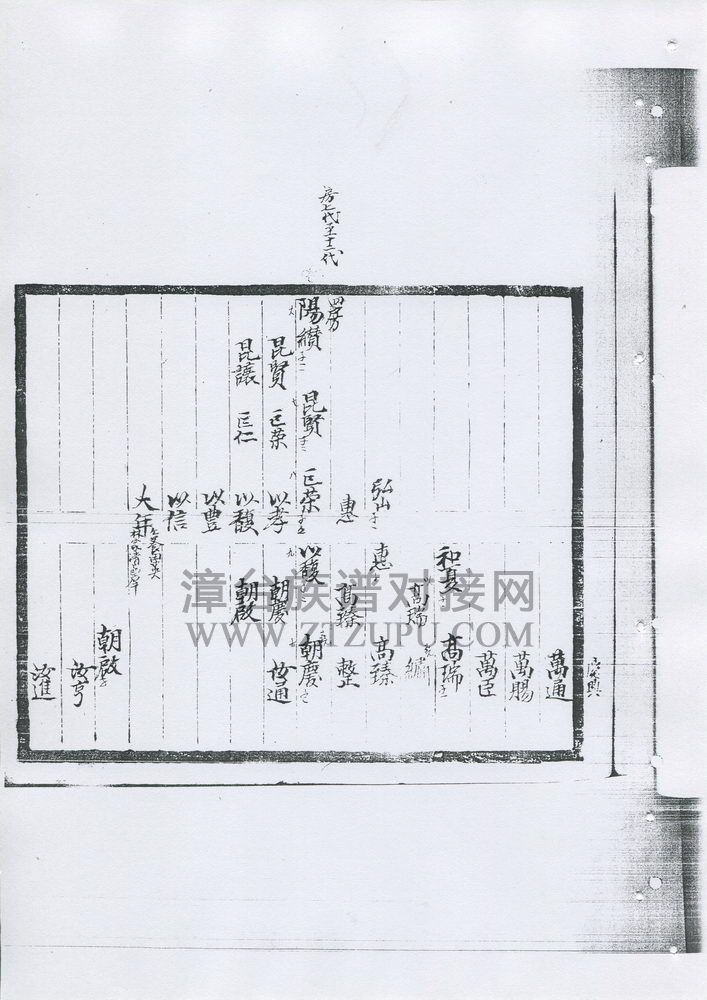 房七代至十一代
萬通
萬賜
萬臣
和具
高瑞
高瑞
繡
弘山
惠
高臻
惠
高臻
整
四房
陽纘
昆賢
匡荣
以馥
朝慶
昆賢
匡荣
以孝
朝慶
汝通
昆讓
匡仁
以馥
朝啟
以豊
以信
大年
朝啟
汝亨
汝進
漳台族谱对接网
WWW.ZTZUPU.COM